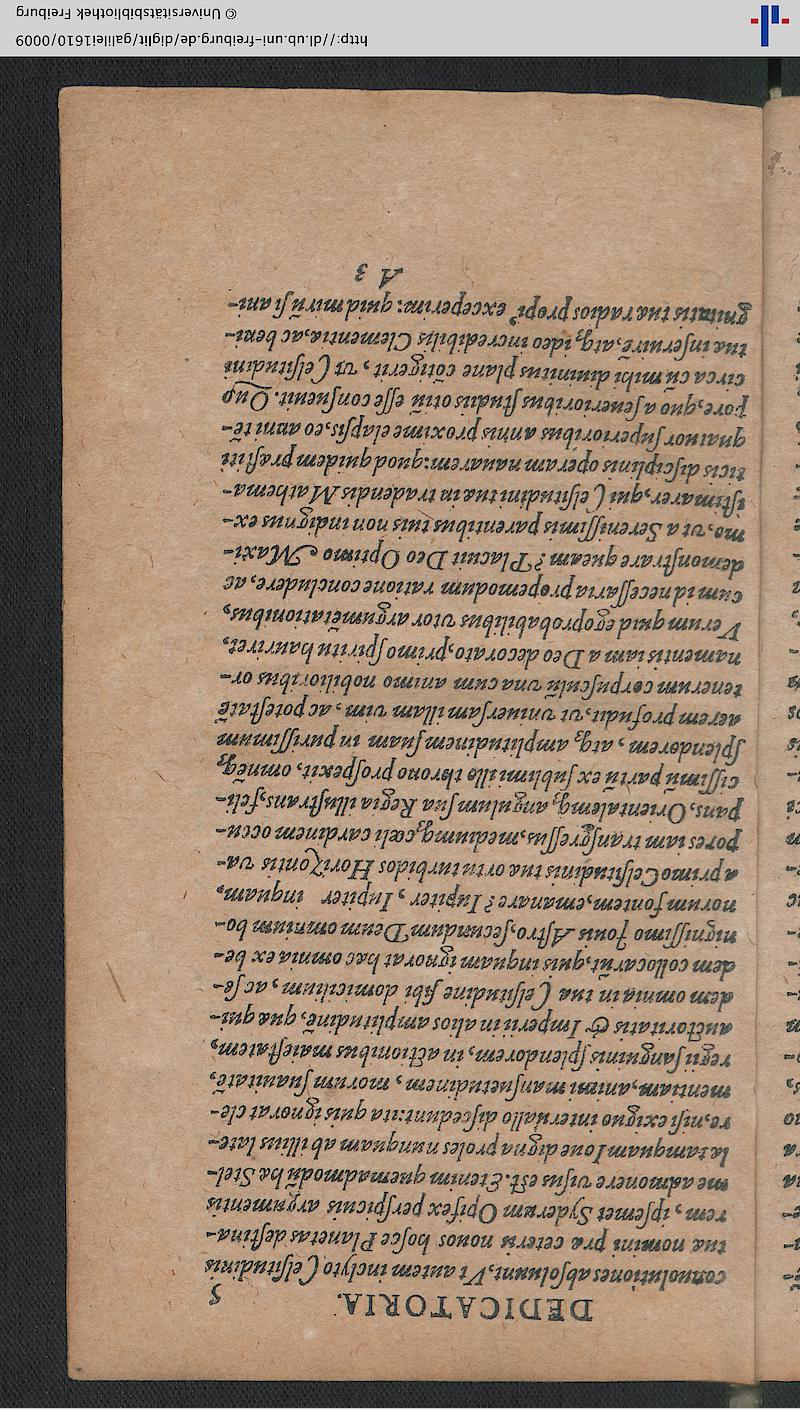 DEDICATORIA. 5
conuolutiones absoluunt. Vt autem inclyto Celsitudinis
tuæ nomini præ ceteris nouos hosce Planetas destina-
rem, ipsemet Syderum Opifex perspicuis argumentis
me admonere visus est. Etenim quemadmodũ hæ Stel-
læ tamquam Ioue digna proles nunquam ab illius late-
re, nisi exiguo interuallo discedunt: ita quis ignorat cle-
mentiam, animi mansuetudinem, morum suauitatẽ,
regij sanguinis splendorem, in actionibus maiestatem,
auctoritatis & Imperii in alios amplitudinẽ, quæ qui-
dem omnia in tua Celsitudine sibi domicilium, ac se-
dem collocarũt, quis inquam ignorat hæc omnia ex be-
nignissimo Iouis Astro, secundum Deum omnium bo-
norum fontem, emanare? Iupiter, Iupiter inquam,
a primo Celsitudinis tuæ ortu turbidos Horizontis va-
pores iam transgressus, mediumq́; cœli cardinem occu-
pans, Orientalemq́; angulum sua Regia illustrans, feli-
cissimũ partũ ex sublimi illo throno prospexit, omnẽq́;
splendorem, atq́; amplitudinem suam in purissimum
aerem profudit, vt vniuersam illam vim, ac potestatẽ
tenerum corpusculũ vna cum animo nobilioribus or-
namentis iam a Deo decorato, primo spiritu hauriret.
Verum quid ego probabilibus vtor argumẽtationibus,
cum id necessaria propemodum ratione concludere, ac
demonstrare queam? Placuit Deo Optimo Maxi-
mo, vt a Serenissimis parentibus tuis non indignus ex-
istimarer, qui Celsitudini tuæ in tradendis Mathema-
ticis disciplinis operam nauarem: quod quidem præstiti
quatuor superioribus annis proxime elapsis, eo anni tẽ-
pore, quo a seuerioribus studiis otiũ esse consueuit. Quo
circa cũ mihi diuinitus plane cõtigerit, vt Celsitudini
tuæ inseruirẽ, atq́; ideo incredibilis Clementiæ, ac beni-
gnitatis tuæ radios propiꝰ exceperim: quid mirũ si ani-
A 3
http://dl.ub.uni-freiburg.de/diglit/galilei1610/0009
© Universitätsbibliothek Freiburg